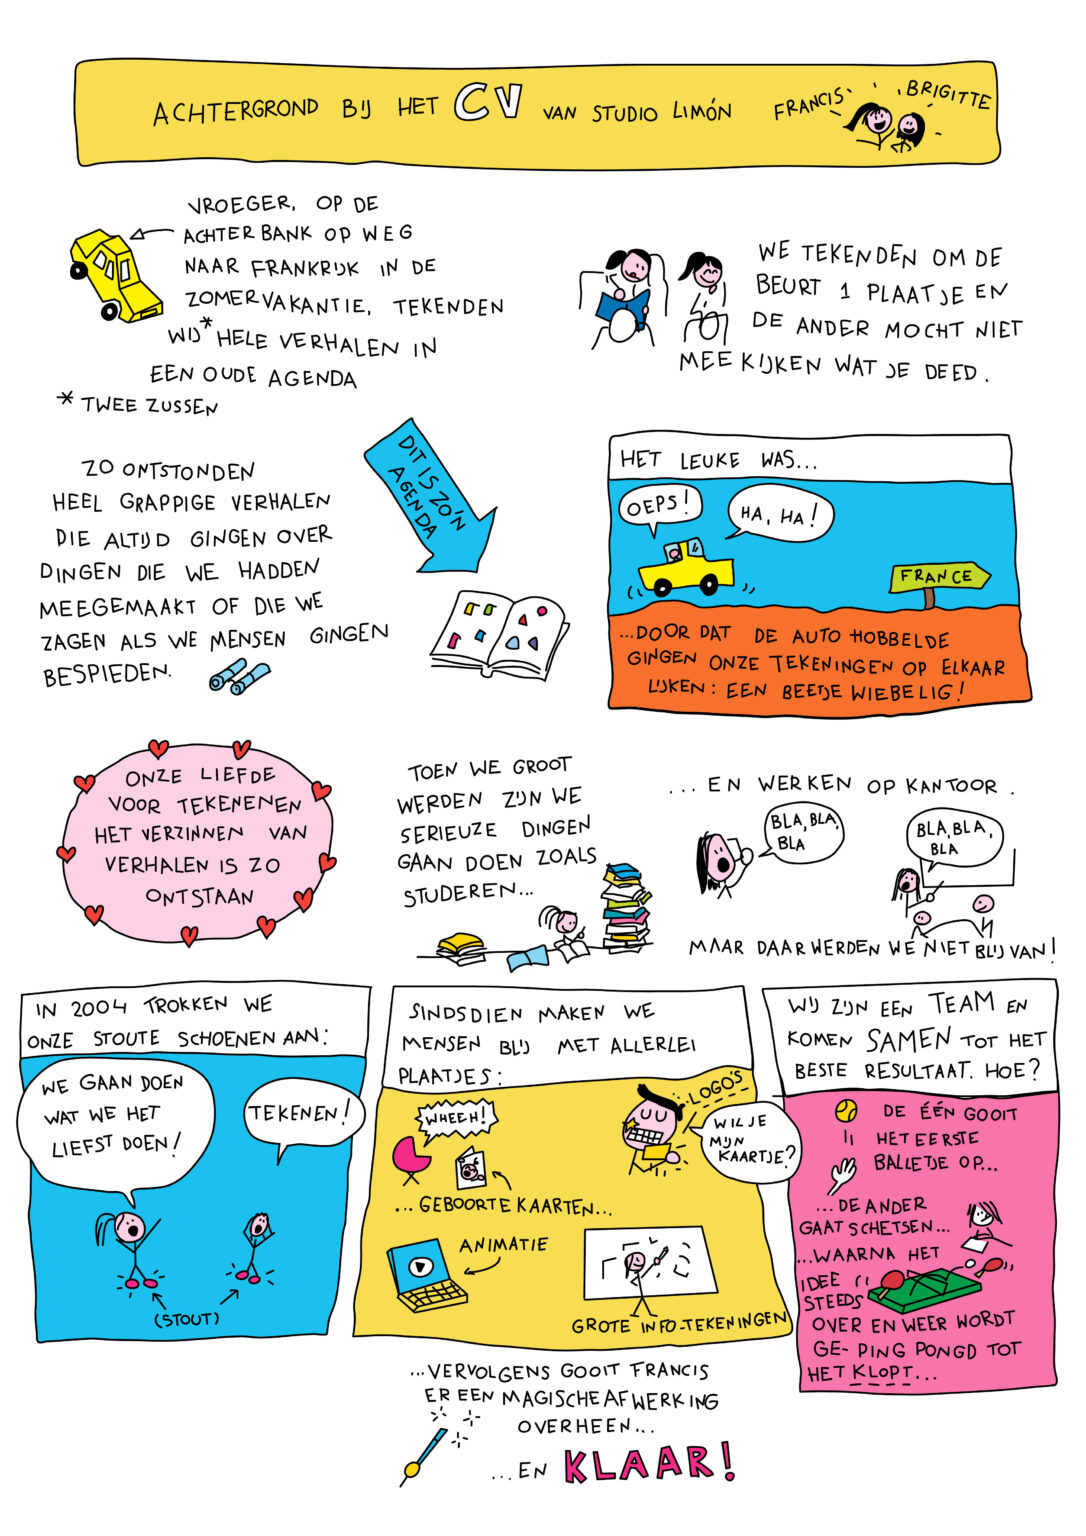 ACHTERGROND BIJ HET CV VAN STUDIO LIMÓN
FRANCIS
BRIGITTE
VROEGER, OP DE
ACHTERBANK OP WEG
NAAR FRANKRIJK IN DE
ZOMERVAKANTIE, TEKENDEN
WIJ* HELE VERHALEN IN
EEN OUDE AGENDA
* TWEE ZUSSEN
WE TEKENDEN OM DE
BEURT 1 PLAATJE EN
DE ANDER MOCHT NIET
MEE KIJKEN WAT JE DEED.
ZO ONTSTONDEN
HEEL GRAPPIGE VERHALEN
DIE ALTIJD GINGEN OVER
DINGEN DIE WE HADDEN
MEEGEMAAKT OF DIE WE
ZAGEN ALS WE MENSEN GINGEN
BESPIEDEN.
DIT IS ZO'N
AGENDA
HET LEUKE WAS...
OEPS!
HA, HA!
FRANCE
...DOOR DAT DE AUTO HOBBELDE
GINGEN ONZE TEKENINGEN OP ELKAAR
LIJKEN: EEN BEETJE WIEBELIG!
ONZE LIEFDE
VOOR TEKENENEN
HET VERZINNEN VAN
VERHALEN IS ZO
ONTSTAAN
TOEN WE GROOT
WERDEN ZIJN WE
SERIEUZE DINGEN
GAAN DOEN ZOALS
STUDEREN...
...EN WERKEN OP KANTOOR.
BLA, BLA,
BLA
BLA, BLA,
BLA
MAAR DAAR WERDEN WE NIET BLIJ VAN!
IN 2004 TROKKEN WE
ONZE STOUTE SCHOENEN AAN:
WE GAAN DOEN
WAT WE HET
LIEFST DOEN!
TEKENEN!
(STOUT)
SINDSDIEN MAKEN WE
MENSEN BLIJ MET ALLERLEI
PLAATJES:
WHEEH!
...LOGO'S
WIL JE
MIJN
KAARTJE?
...GEBOORTEKAARTEN...
ANIMATIE
GROTE INFO-TEKENINGEN
WIJ ZIJN EEN TEAM EN
KOMEN SAMEN TOT HET
BESTE RESULTAAT. HOE?
DE ÉÉN GOOIT
HET EERSTE
BALLETJE OP...
...DE ANDER
GAAT SCHETSEN...
...WAARNA HET
IDEE
STEEDS
OVER EN WEER WORDT
GE-PING PONGD TOT
HET KLOPT...
...VERVOLGENS GOOIT FRANCIS
ER EEN MAGISCHE AFWERKING
OVERHEEN...
...EN KLAAR!